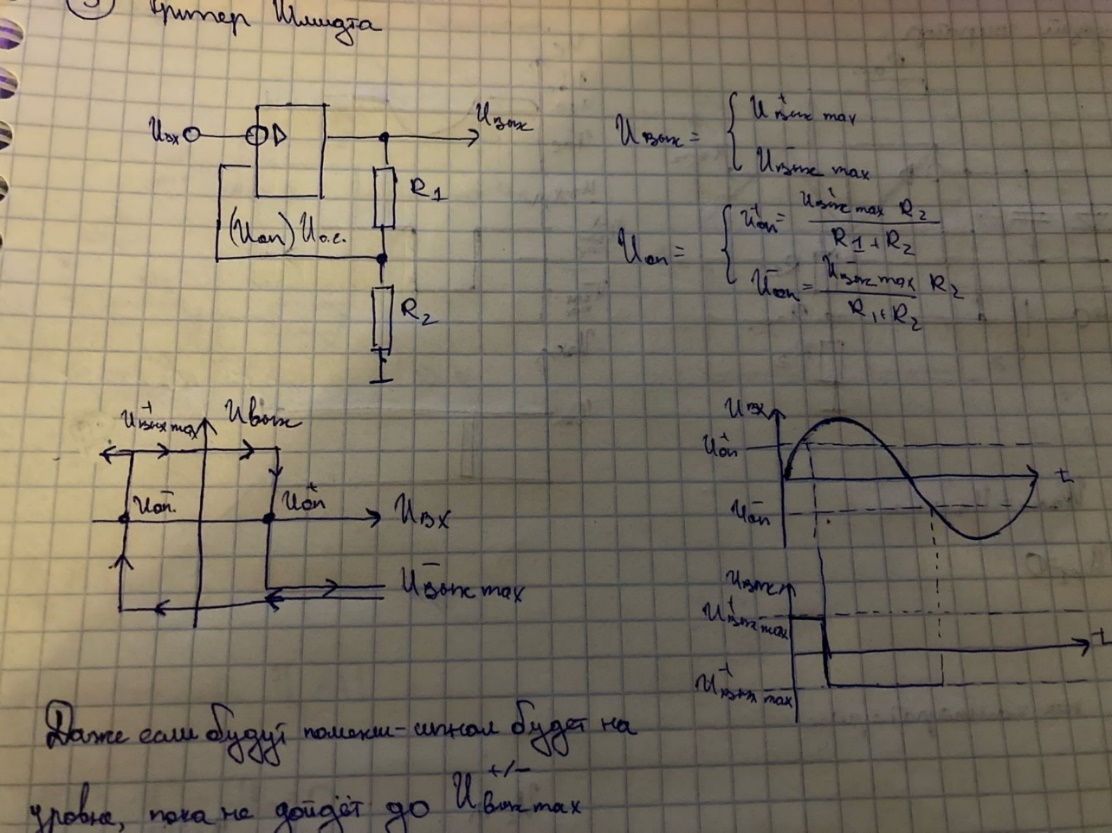 3 Триггер Шмидта
Uвх
Uвых
R1
(Uоп) Uо.с.
R2
Uвых = { U⁺вых max
U⁻вых max
Uоп = { U⁺оп = U⁺вых max R2 / R1+R2
U⁻оп = U⁻вых max R2 / R1+R2
U⁺вых max
Uвых
U⁻оп
U⁺оп
Uвх
U⁻вых max
Uвх
U⁺оп
t
U⁻оп
Uвых
U⁺вых max
t
U⁺вых max
Даже если будут помехи-сигнал будет на
уровне, пока не дойдёт до U⁺/⁻вых max